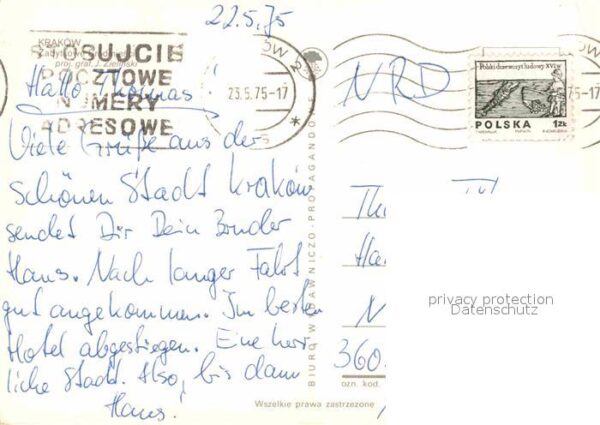 22.5.75
KRAKÓW
proj. graf. J. Zieliński
STOSUJCIE
POCZTOWE
NUMERY
ADRESOWE
23.5.75-17
Hallo Thomas!
Viele Grüße aus der
schönen Stadt Kraków
sendet Dir Dein Bruder
Hans. Nach langer Fahrt
gut angekommen. Im besten
Hotel abgestiegen. Eine herr
liche Stadt. Also, bis dann
Hans!
BIURO WYDAWNICZO-PROPAGANDOWE
NRD
Polski drzeworyt ludowy XVI w.
POLSKA 1zł
75-17
Th
Ha
N
360
ozn. kod.
Wszelkie prawa zastrzeżone
privacy protection
Datenschutz